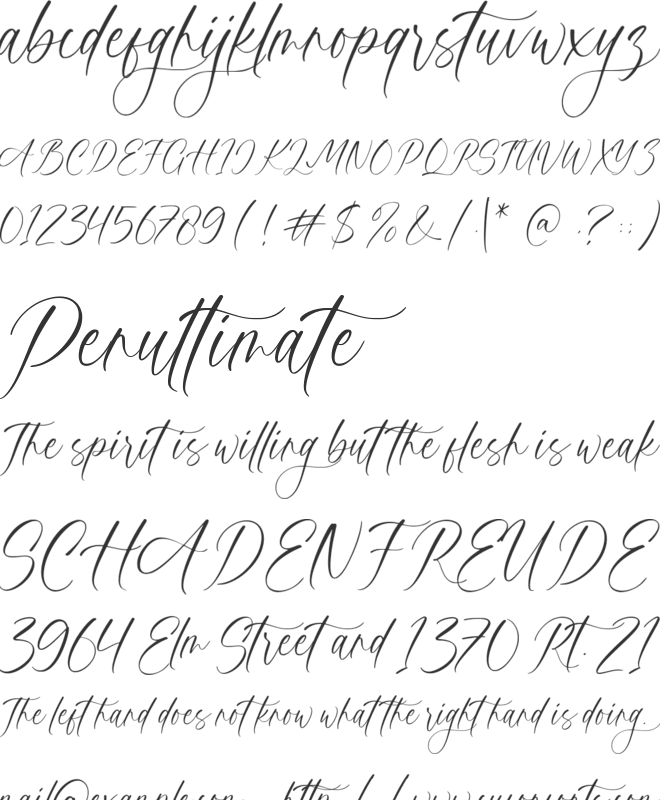 abcdefghijklmnopqrstuvwxyz
ABCDEFGHIJKLMNOPQRSTUVWXYZ
0123456789(!#$%&/.|*@.?::)
Penultimate
The spirit is willing but the flesh is weak
SCHADENFREUDE
3964 Elm Street and 1370 Rt. 21
The left hand does not know what the right hand is doing.